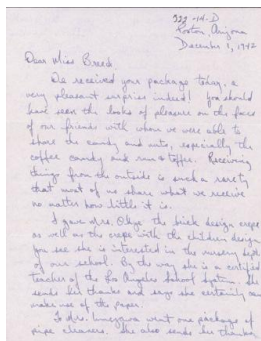 322-14-D
Poston, Arizona
December 1, 1942
Dear Miss Breed,
We received your package today, a
very pleasant surprise indeed! You should
have seen the looks of pleasure on the faces
of our friends with whom we were able to
share the candy and nuts, especially the
coffee candy and rum & toffee. Receiving
things from the outside is such a rarity
that most of us share what we receive
no matter how little it is.
I gave Mrs. the brick design crepe
as well as the crepe with the children design
you see she is interested in the nursery dept
of our school. By the way she is a certified
teacher of the Los Angeles School System. She
sends her thanks and says she certainly can
make use of the paper.
To Mrs. went one package of
pipe cleaners. She also sends her thanks,